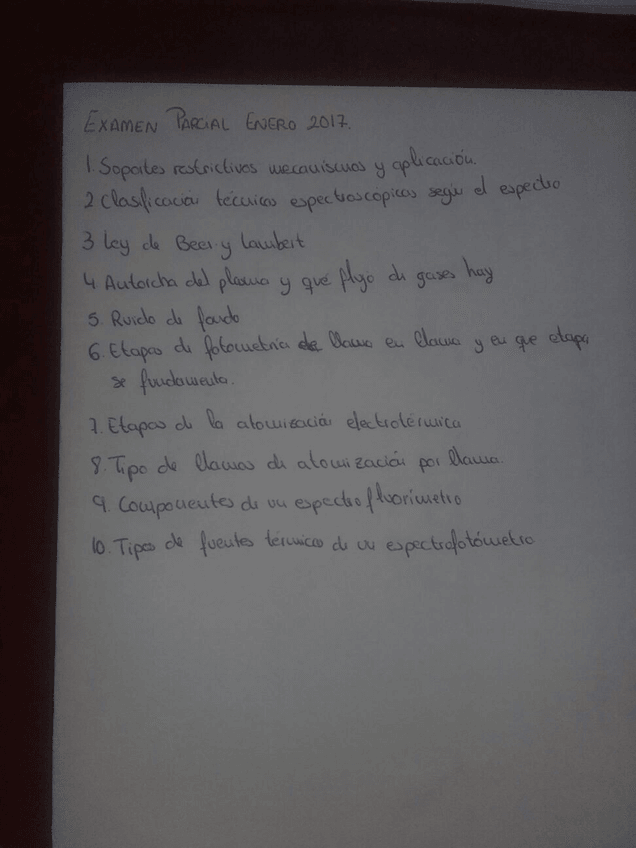 EXAMEN PARCIAL ENERO 2017.
1. Soportes restrictivos mecanismos y aplicación.
2 Clasificación técnicas espectroscópicas según el espectro
3 Ley de Beer y Lambert
4 Antorcha del plasma y qué flujo de gases hay
5. Ruido de fondo
6. Etapas de fotometría de llama en llama y en que etapa
se fundamenta.
7. Etapas de la atomización electrotérmica
8. Tipo de llamas de atomización por llama.
9. Componentes de un espectrofluorímetro
10. Tipos de fuentes térmicas de un espectrofotómetro